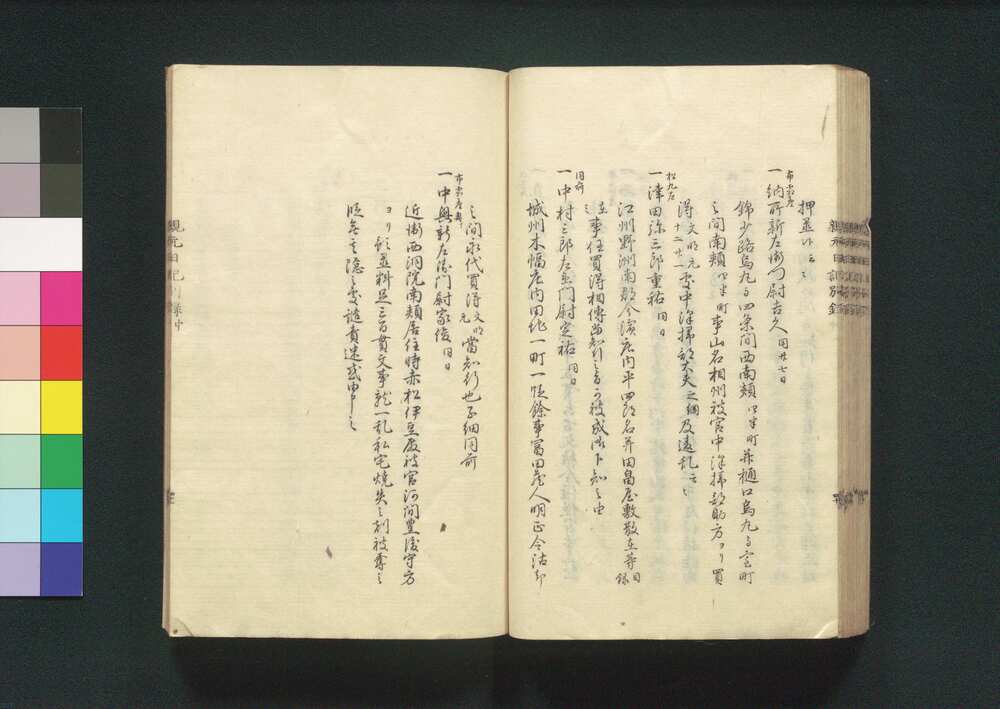 押置
布出座
一納所新左衛門尉吉久 同廿七日
錦少路烏丸与四条間西南頬 口半町 并樋口烏丸与室町
之間南頬 口半町 事山名相州被官中沢掃部助方ヨリ買
得 文明元 十二廿一 処中沢掃部大夫 之綱 及違乱云々
松九左
一津田弥三郎重祐 同日
江州野洲南郡今浜庄内平四郎名并田畠屋敷散在等 目録
在之 事任買得相伝当知行之旨可被成御下知之由
同前
一中村三郎左衛門尉定祐 同日
城州木幡庄内田地一町一段余事富田蔵人明正令沽却
之間永代買得 文明元 当知行也子細同前
布出座
一中興新左衛門尉家俊 同日
近衛西洞院南頬居住時赤松伊豆殿被官河間豊後守方
ヨリ預置料足三百貫文事就一乱私宅焼失之刻被奪之
段無其隠之処譴責迷惑由申之
親元日記別録中